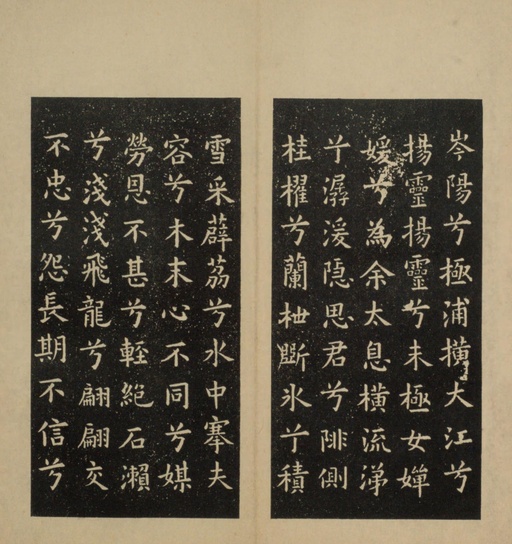 岑陽兮極浦橫大江兮
揚靈揚靈兮未極女嬋
媛兮為余太息橫流涕
兮潺湲隠思君兮陫側
桂櫂兮蘭枻斷氷兮積
雪采薜荔兮水中搴夫
容兮木末心不同兮媒
勞恩不甚兮輕絕石瀨
兮淺淺飛龍兮翩翩交
不忠兮怨長期不信兮